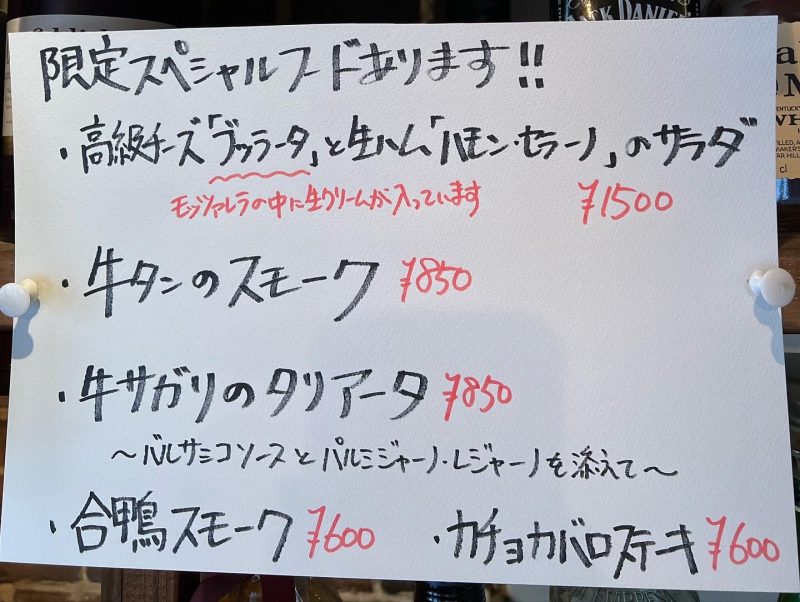 限定スペシャルフードあります!!
・高級チーズ「ブッラータ」と生ハム「ハモン・セラーノ」のサラダ
モッツァレラの中に生クリームが入っています ¥1500
・牛タンのスモーク ¥850
・牛サガリのタリアータ ¥850
〜バルサミコソースとパルミジャーノ・レジャーノを添えて〜
・合鴨スモーク ¥600 ・カチョカバロステーキ ¥600
JACK DANIEL